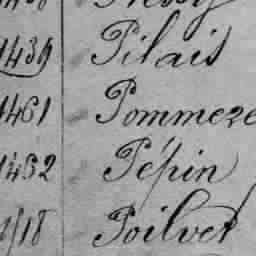 1439 Pilais
1461 Pommeze
1462 Pépin
1718 Poilvet